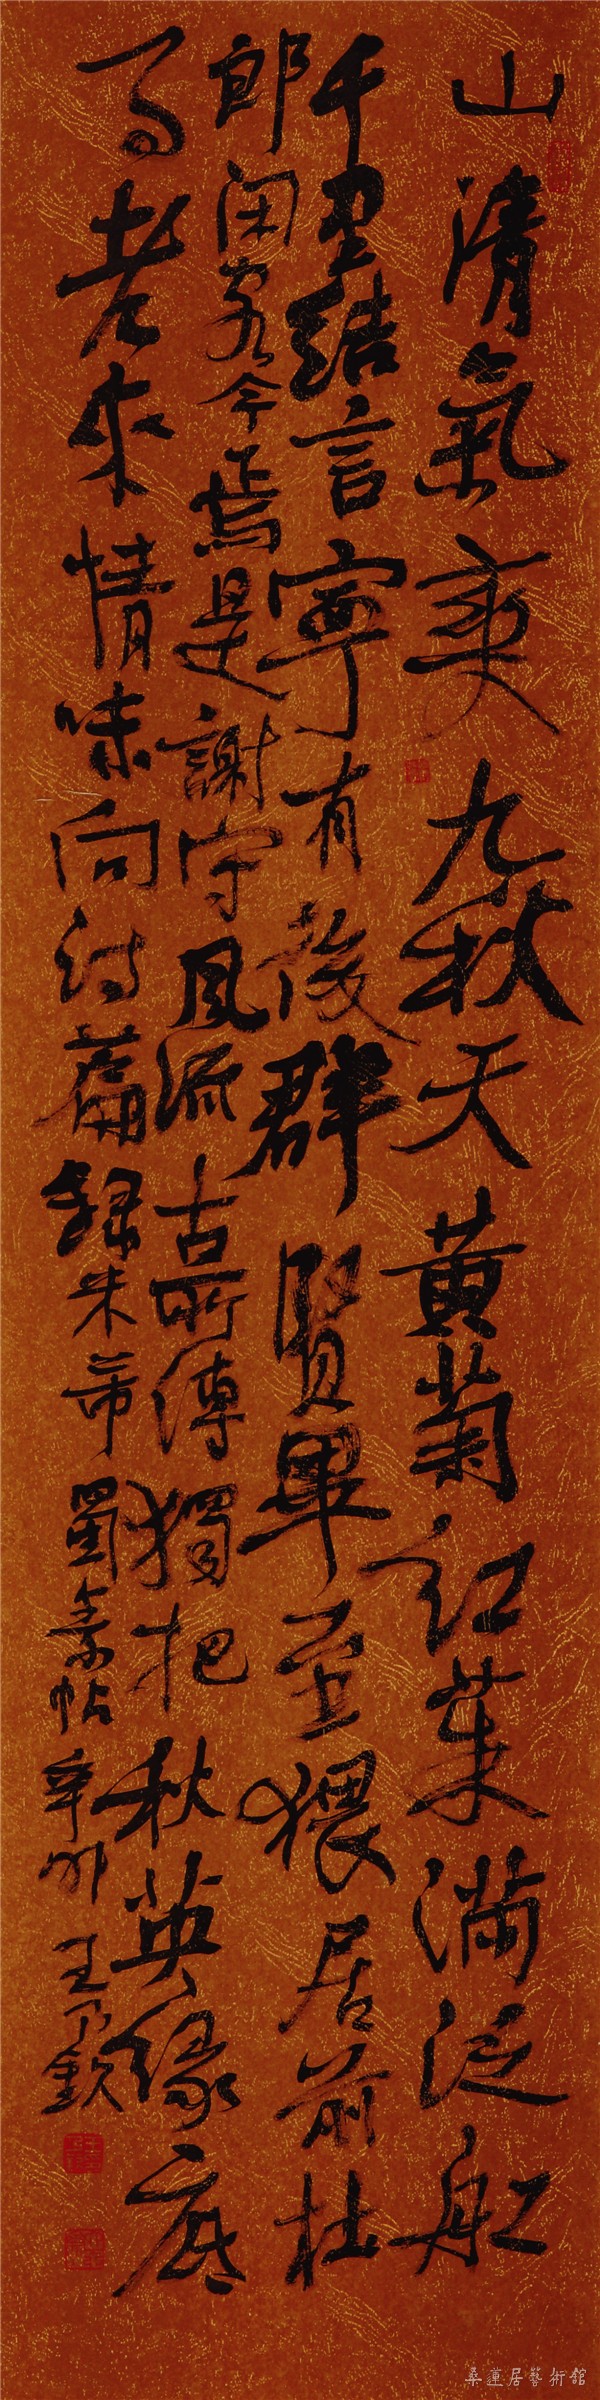 山清氣爽九秋天黃菊紅茱滿泛船
千里結言寧有後群賢畢至猥居前杜
郎閑客今焉是謝守風流古所傳獨把秋英緣底
事老來情味向詩篇錄米芾蜀素帖辛卯王乃欽
桑蓮居藝術館